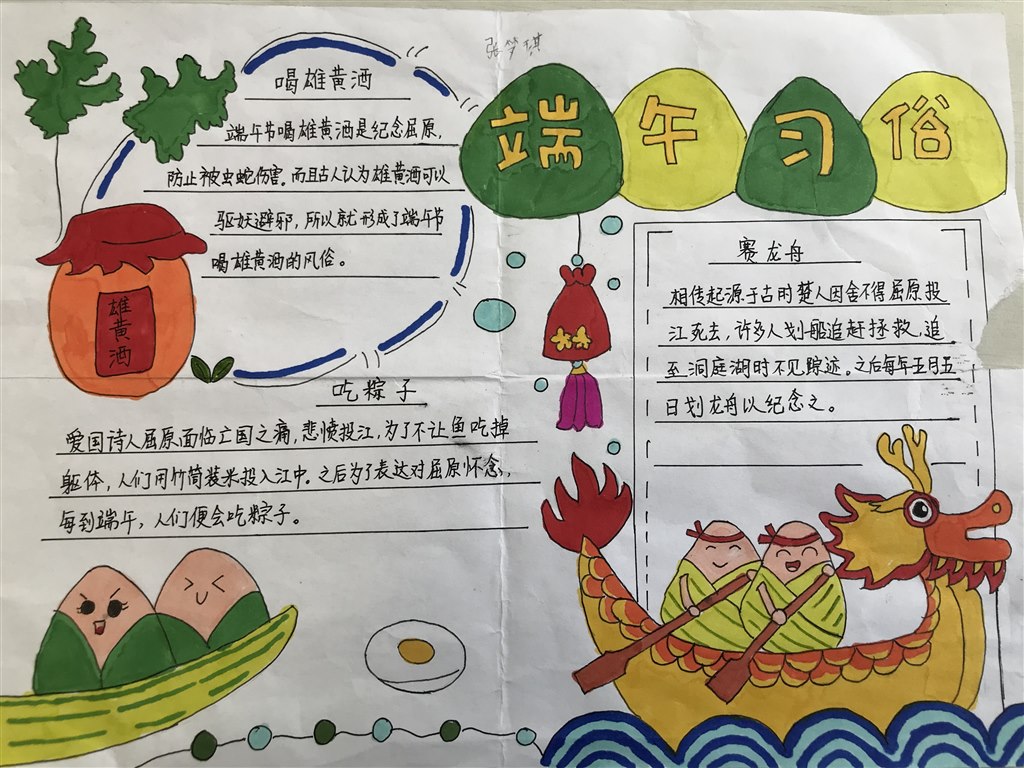 张梦琪
端午习俗
喝雄黄酒
端午节喝雄黄酒是纪念屈原,
防止被虫蛇伤害。而且古人认为雄黄酒可以
驱妖避邪,所以就形成了端午节
喝雄黄酒的风俗。
雄黄酒
吃粽子
爱国诗人屈原面临亡国之痛,悲愤投江,为了不让鱼吃掉
躯体,人们用竹筒装米投入江中。之后为了表达对屈原怀念,
每到端午,人们便会吃粽子。
赛龙舟
相传起源于古时楚人因舍不得屈原投
江死去,许多人划船追赶拯救,追
至洞庭湖时不见踪迹。之后每年五月五
日划龙舟以纪念之。